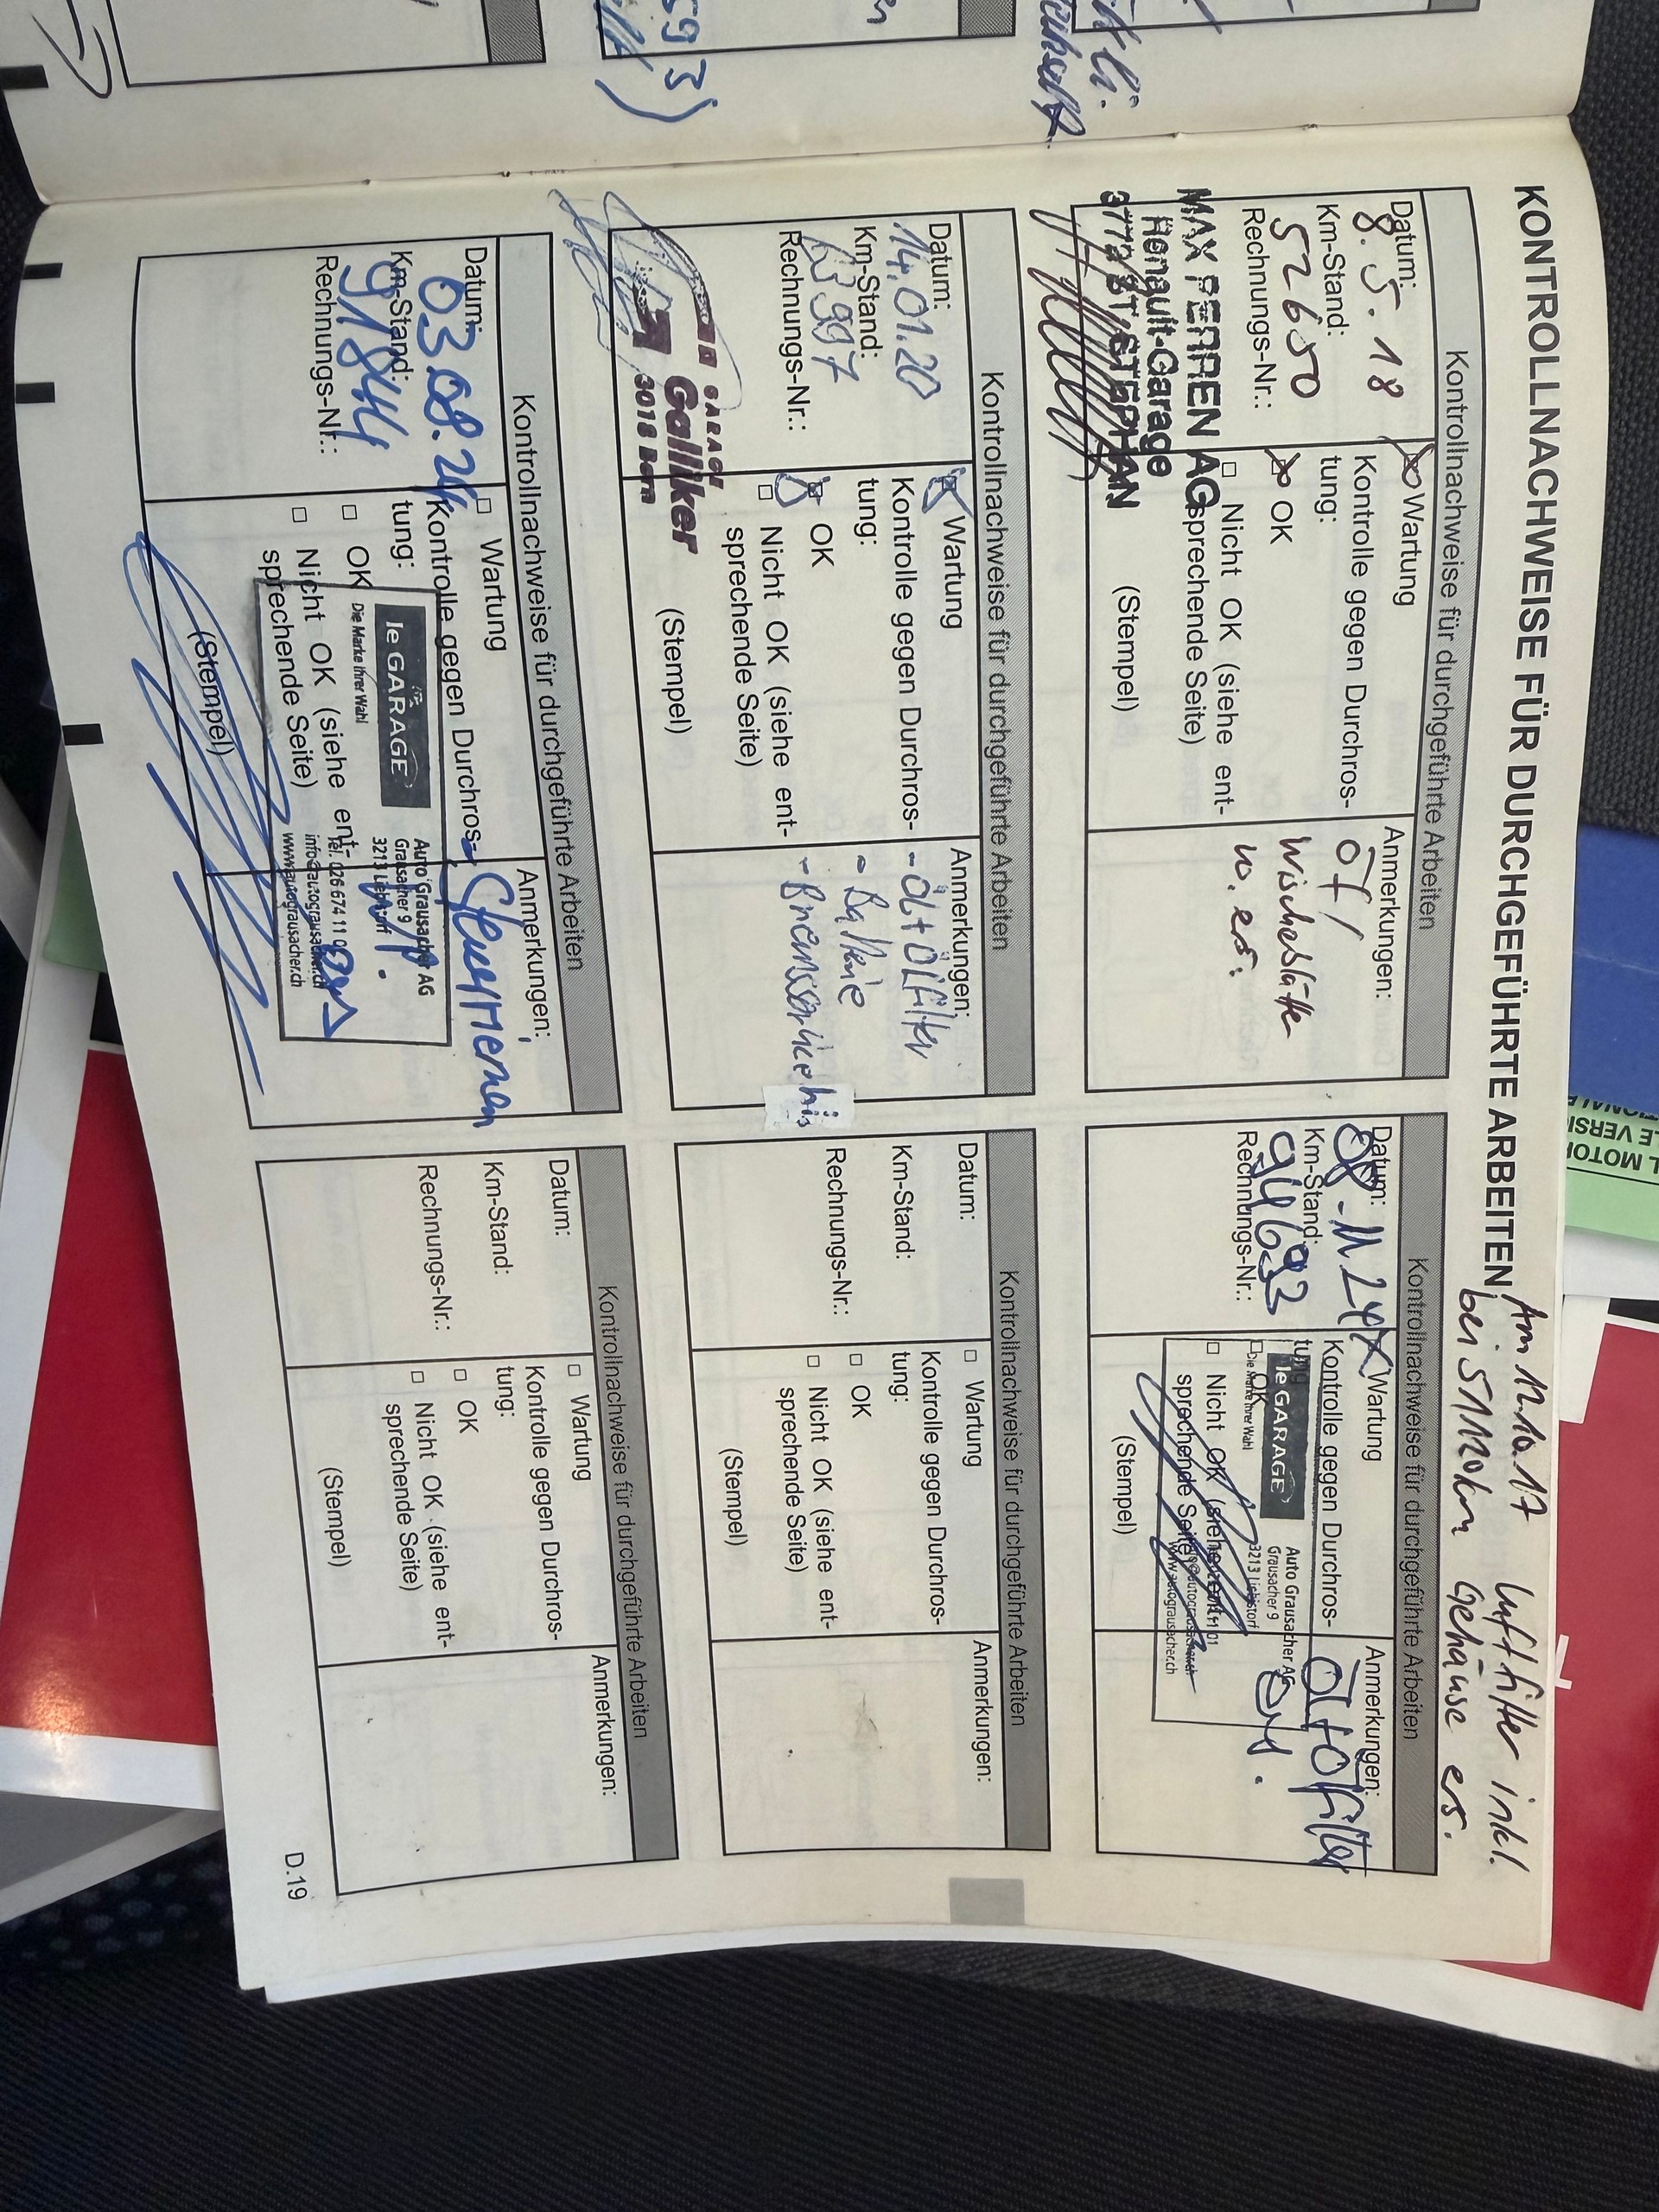 KONTROLLNACHWEISE FÜR DURCHGEFÜHRTE ARBEITEN
Am 12.10.17 Luftfilter inkl.
bei 51120km Gehäuse ers.
Kontrollnachweise für durchgeführte Arbeiten
Datum:
8.5.18
Km-Stand:
52650
Rechnungs-Nr.:
Wartung
Kontrolle gegen Durchros-
tung:
OK
Nicht OK (siehe ent-
sprechende Seite)
(Stempel)
MAX PERREN AG
Renault-Garage
3772 ST. STEPHAN
Anmerkungen:
Wischeblätter
w. ers.
Kontrollnachweise für durchgeführte Arbeiten
Datum:
08.11.24
Km-Stand:
94693
Rechnungs-Nr.:
Wartung
Kontrolle gegen Durchros-
tung:
OK
Nicht OK (siehe ent-
sprechende Seite)
(Stempel)
le GARAGE
Die Marke Ihrer Wahl
Auto Grausacher AG
Grausacher 9
3213 Liebistorf
www.autograusacher.ch
Anmerkungen:
Öl+Ölfilter
Kontrollnachweise für durchgeführte Arbeiten
Datum:
14.01.20
Km-Stand:
63997
Rechnungs-Nr.:
Wartung
Kontrolle gegen Durchros-
tung:
OK
Nicht OK (siehe ent-
sprechende Seite)
(Stempel)
GARAGE
Galliker
3018 Bern
Anmerkungen:
- Öl+Ölfilter
- Batterie
Kontrollnachweise für durchgeführte Arbeiten
Datum:
Km-Stand:
Rechnungs-Nr.:
Wartung
Kontrolle gegen Durchros-
tung:
OK
Nicht OK (siehe ent-
sprechende Seite)
(Stempel)
Anmerkungen:
Kontrollnachweise für durchgeführte Arbeiten
Datum:
03.08.24
Km-Stand:
91844
Rechnungs-Nr.:
Wartung
Kontrolle gegen Durchros-
tung:
OK
Nicht OK (siehe ent-
sprechende Seite)
(Stempel)
le GARAGE
Die Marke Ihrer Wahl
Auto Grausacher AG
Grausacher 9
3213 Liebistorf
Tel. 026 674 11 01
info@autograusacher.ch
www.autograusacher.ch
Anmerkungen:
Kontrollnachweise für durchgeführte Arbeiten
Datum:
Km-Stand:
Rechnungs-Nr.:
Wartung
Kontrolle gegen Durchros-
tung:
OK
Nicht OK (siehe ent-
sprechende Seite)
(Stempel)
Anmerkungen:
D.19